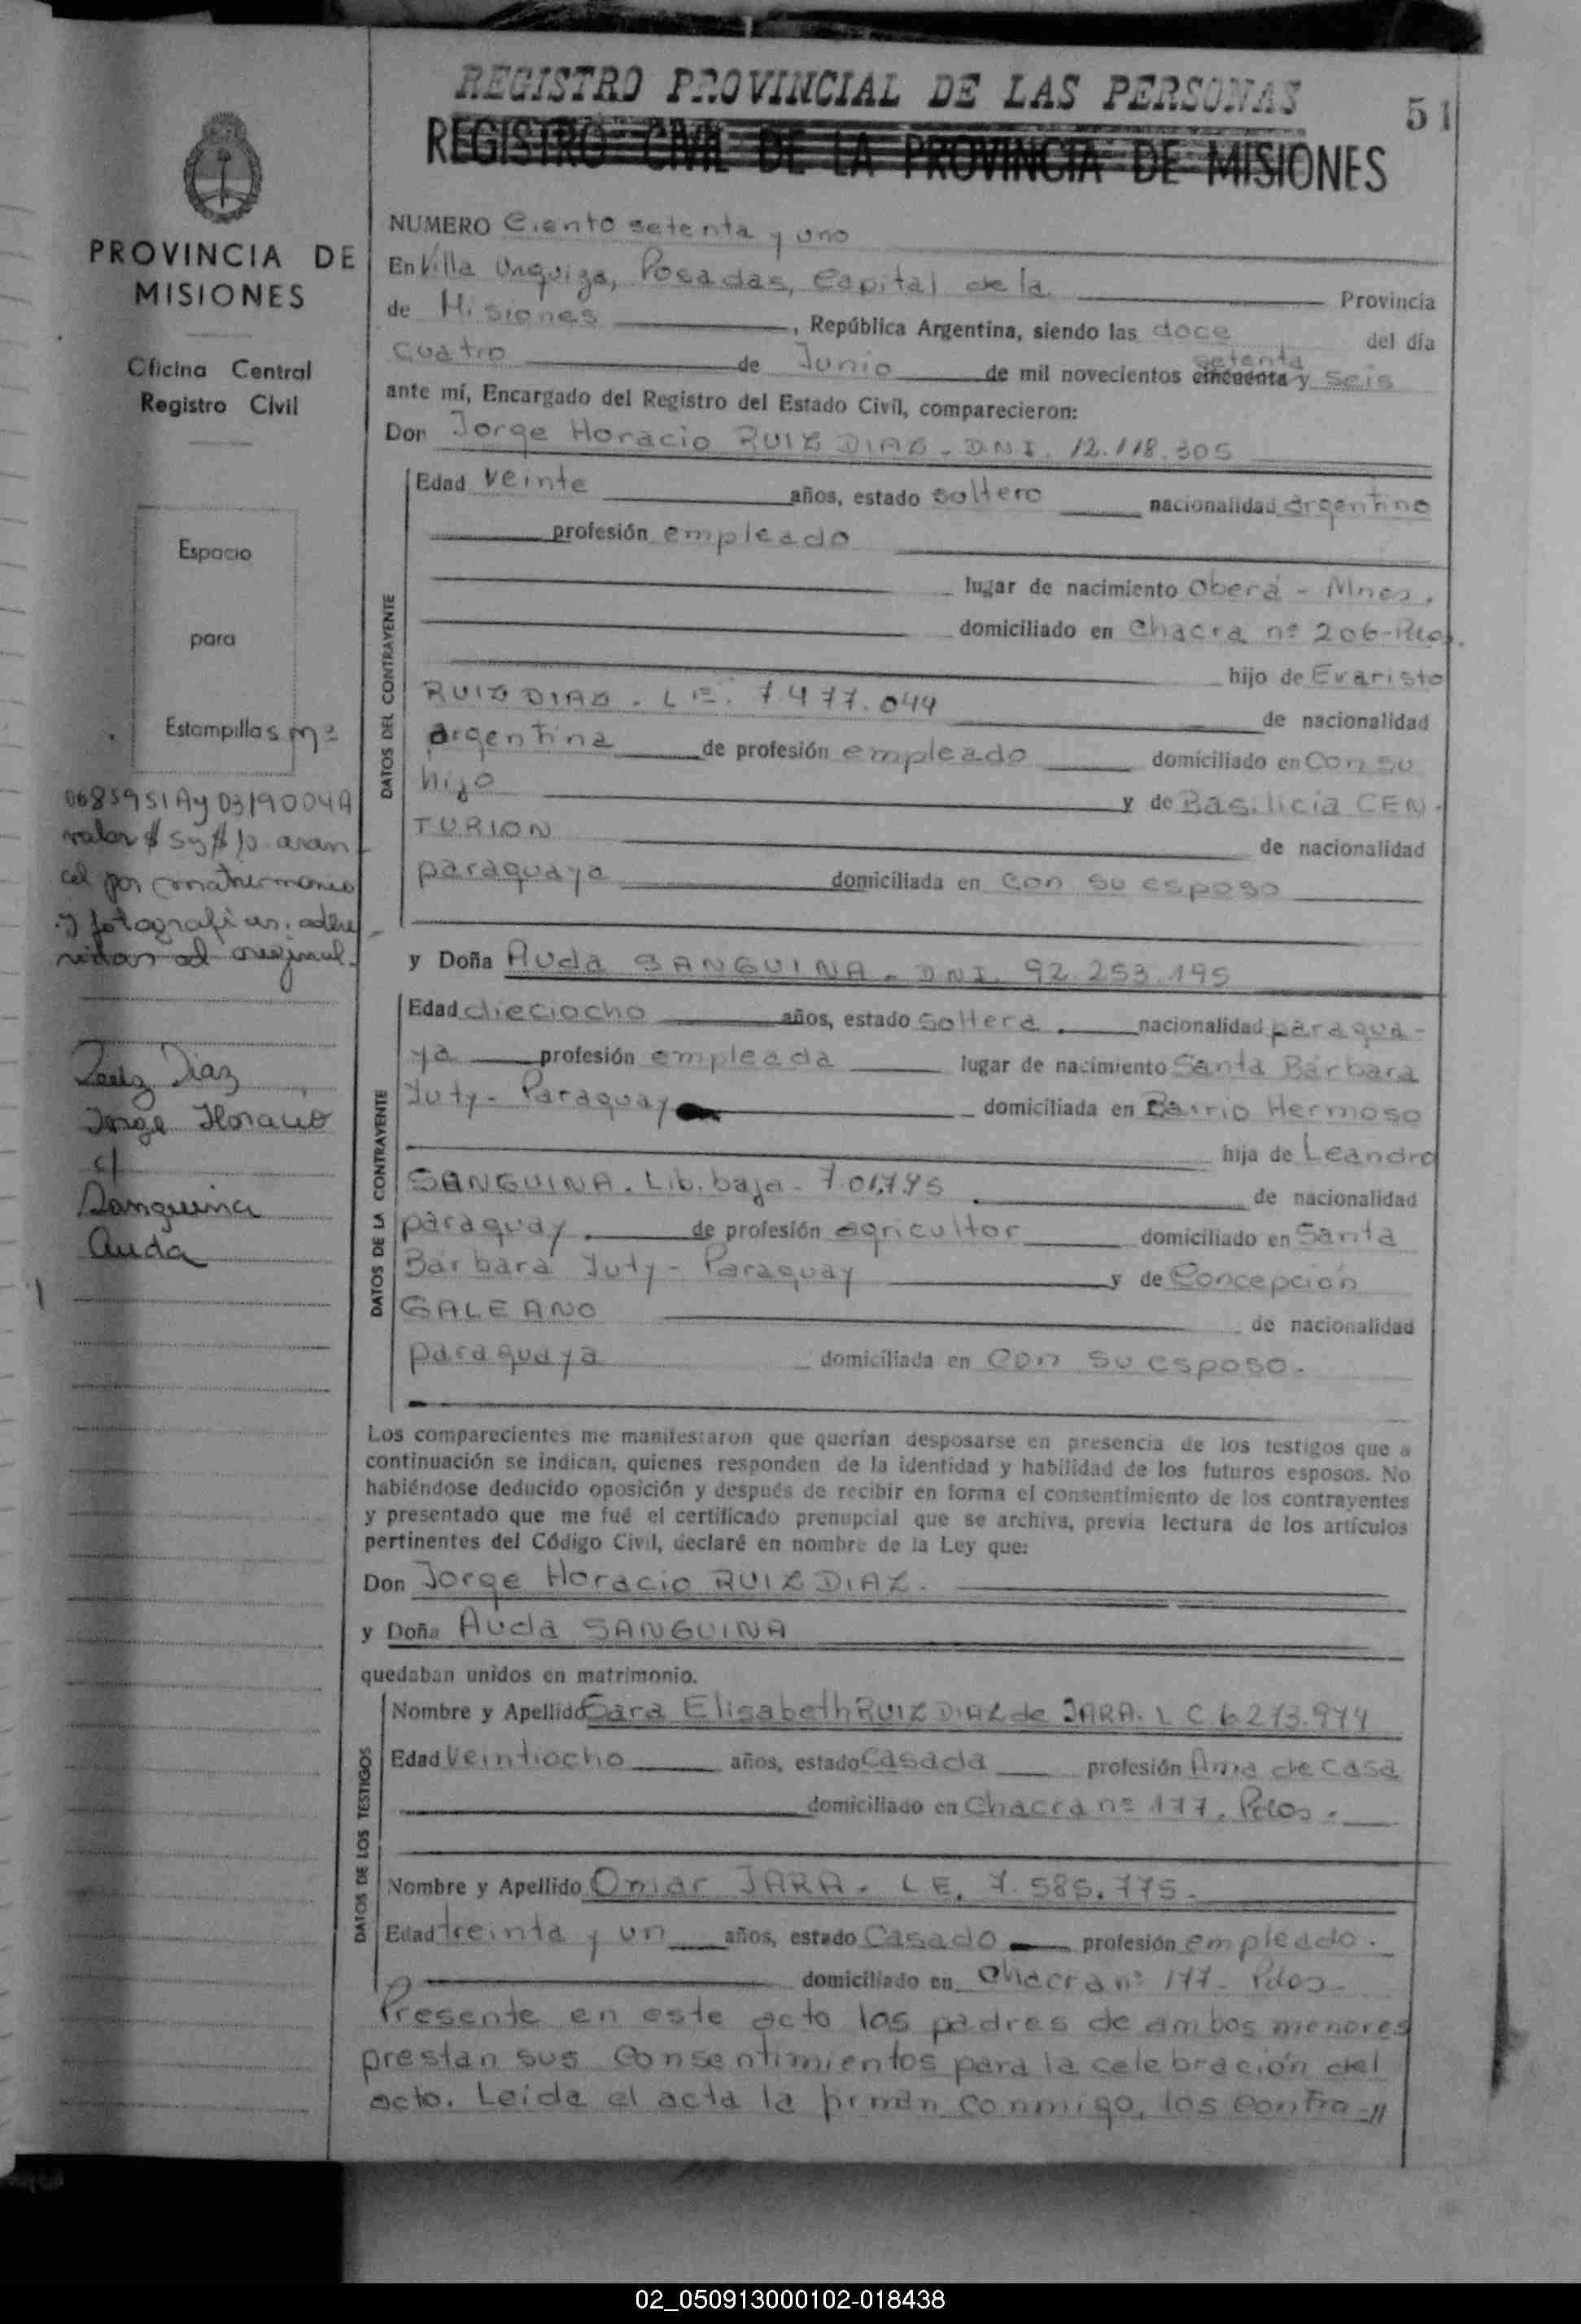 REGISTRO PROVINCIAL DE LAS PERSONAS
51
REGISTRO CIVIL DE LA PROVINCIA DE MISIONES
PROVINCIA DE
MISIONES
Oficina Central
Registro Civil
Espacio
para
Estampillas nº
0685951A y 0319004A
valor $ 5 y $ 10 aran
cel por matrimonio
y fotografias. adhe
ridas al original.
Ruiz Diaz
Jorge Horacio
c/
Sanguina
Auda
NUMERO Ciento setenta y uno
En Villa Urquiza, Posadas, Capital de la Provincia
de Misiones, República Argentina, siendo las doce del día
cuatro de Junio de mil novecientos cincuenta setenta y seis
ante mí, Encargado del Registro del Estado Civil, comparecieron:
Don Jorge Horacio RUIZ DIAZ - D.N.I. 12.118.305
DATOS DEL CONTRAYENTE
Edad veinte años, estado soltero nacionalidad argentino
profesión empleado
lugar de nacimiento Oberá - Mnes.
domiciliado en Chacra nº 206-Pdas.
hijo de Evaristo
RUIZ DIAZ. L E. 7.477.044 de nacionalidad
argentina de profesión empleado domiciliado en con su
hijo y de Basilicia CEN-
TURION de nacionalidad
paraguaya domiciliada en con su esposo
y Doña Auda SANGUINA - D.N.I. 92.253.195
DATOS DE LA CONTRAYENTE
Edad dieciocho años, estado soltera nacionalidad paragua-
ya profesión empleada lugar de nacimiento Santa Bárbara
Yuty - Paraguay domiciliada en Barrio Hermoso
hija de Leandro
SANGUINA. Lib. baja - de nacionalidad
paraguay. de profesión agricultor domiciliado en Santa
Bárbara Yuty - Paraguay y de Concepción
GALEANO de nacionalidad
paraguaya domiciliada en con su esposo.
Los comparecientes me manifestaron que querían desposarse en presencia de los testigos que a
continuación se indican, quienes responden de la identidad y habilidad de los futuros esposos. No
habiéndose deducido oposición y después de recibir en forma el consentimiento de los contrayentes
y presentado que me fué el certificado prenupcial que se archiva, previa lectura de los artículos
pertinentes del Código Civil, declaré en nombre de la Ley que:
Don Jorge Horacio RUIZ DIAZ.
y Doña Auda SANGUINA
quedaban unidos en matrimonio.
DATOS DE LOS TESTIGOS
Nombre y Apellido Sara Elisabeth RUIZ DIAZ de JARA. L C 6.273.974
Edad Veintiocho años, estado Casada profesión Ama de casa
domiciliado en Chacra nº 177. Pdas.
Nombre y Apellido Omar JARA. L E. 7.585.775.
Edad treinta y un años, estado Casado profesión empleado.
domiciliado en Chacra nº 177- Pdas-
Presente en este acto los padres de ambos menores
prestan sus consentimientos para la celebración del
acto. Leida el acta la firman conmigo, los contra-//
02_050913000102-018438